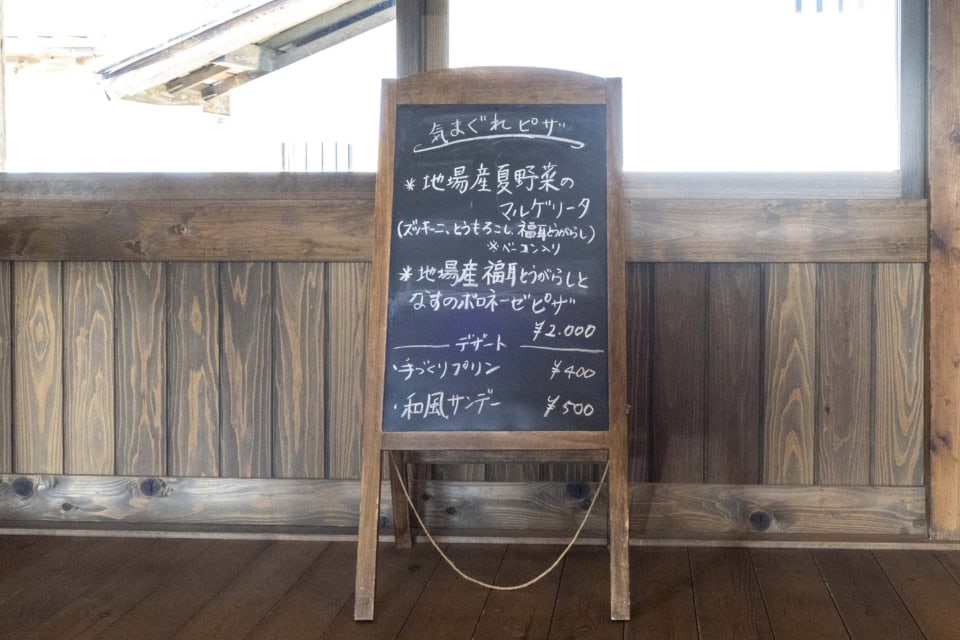 気まぐれピザ
* 地場産夏野菜の
マルゲリータ
(ズッキーニ、とうもろこし、福耳とうがらし)
※ベーコン入り
* 地場産福耳とうがらしと
なすのボロネーゼピザ
¥2.000
デザート
・手づくりプリン ¥400
・和風サンデー ¥500